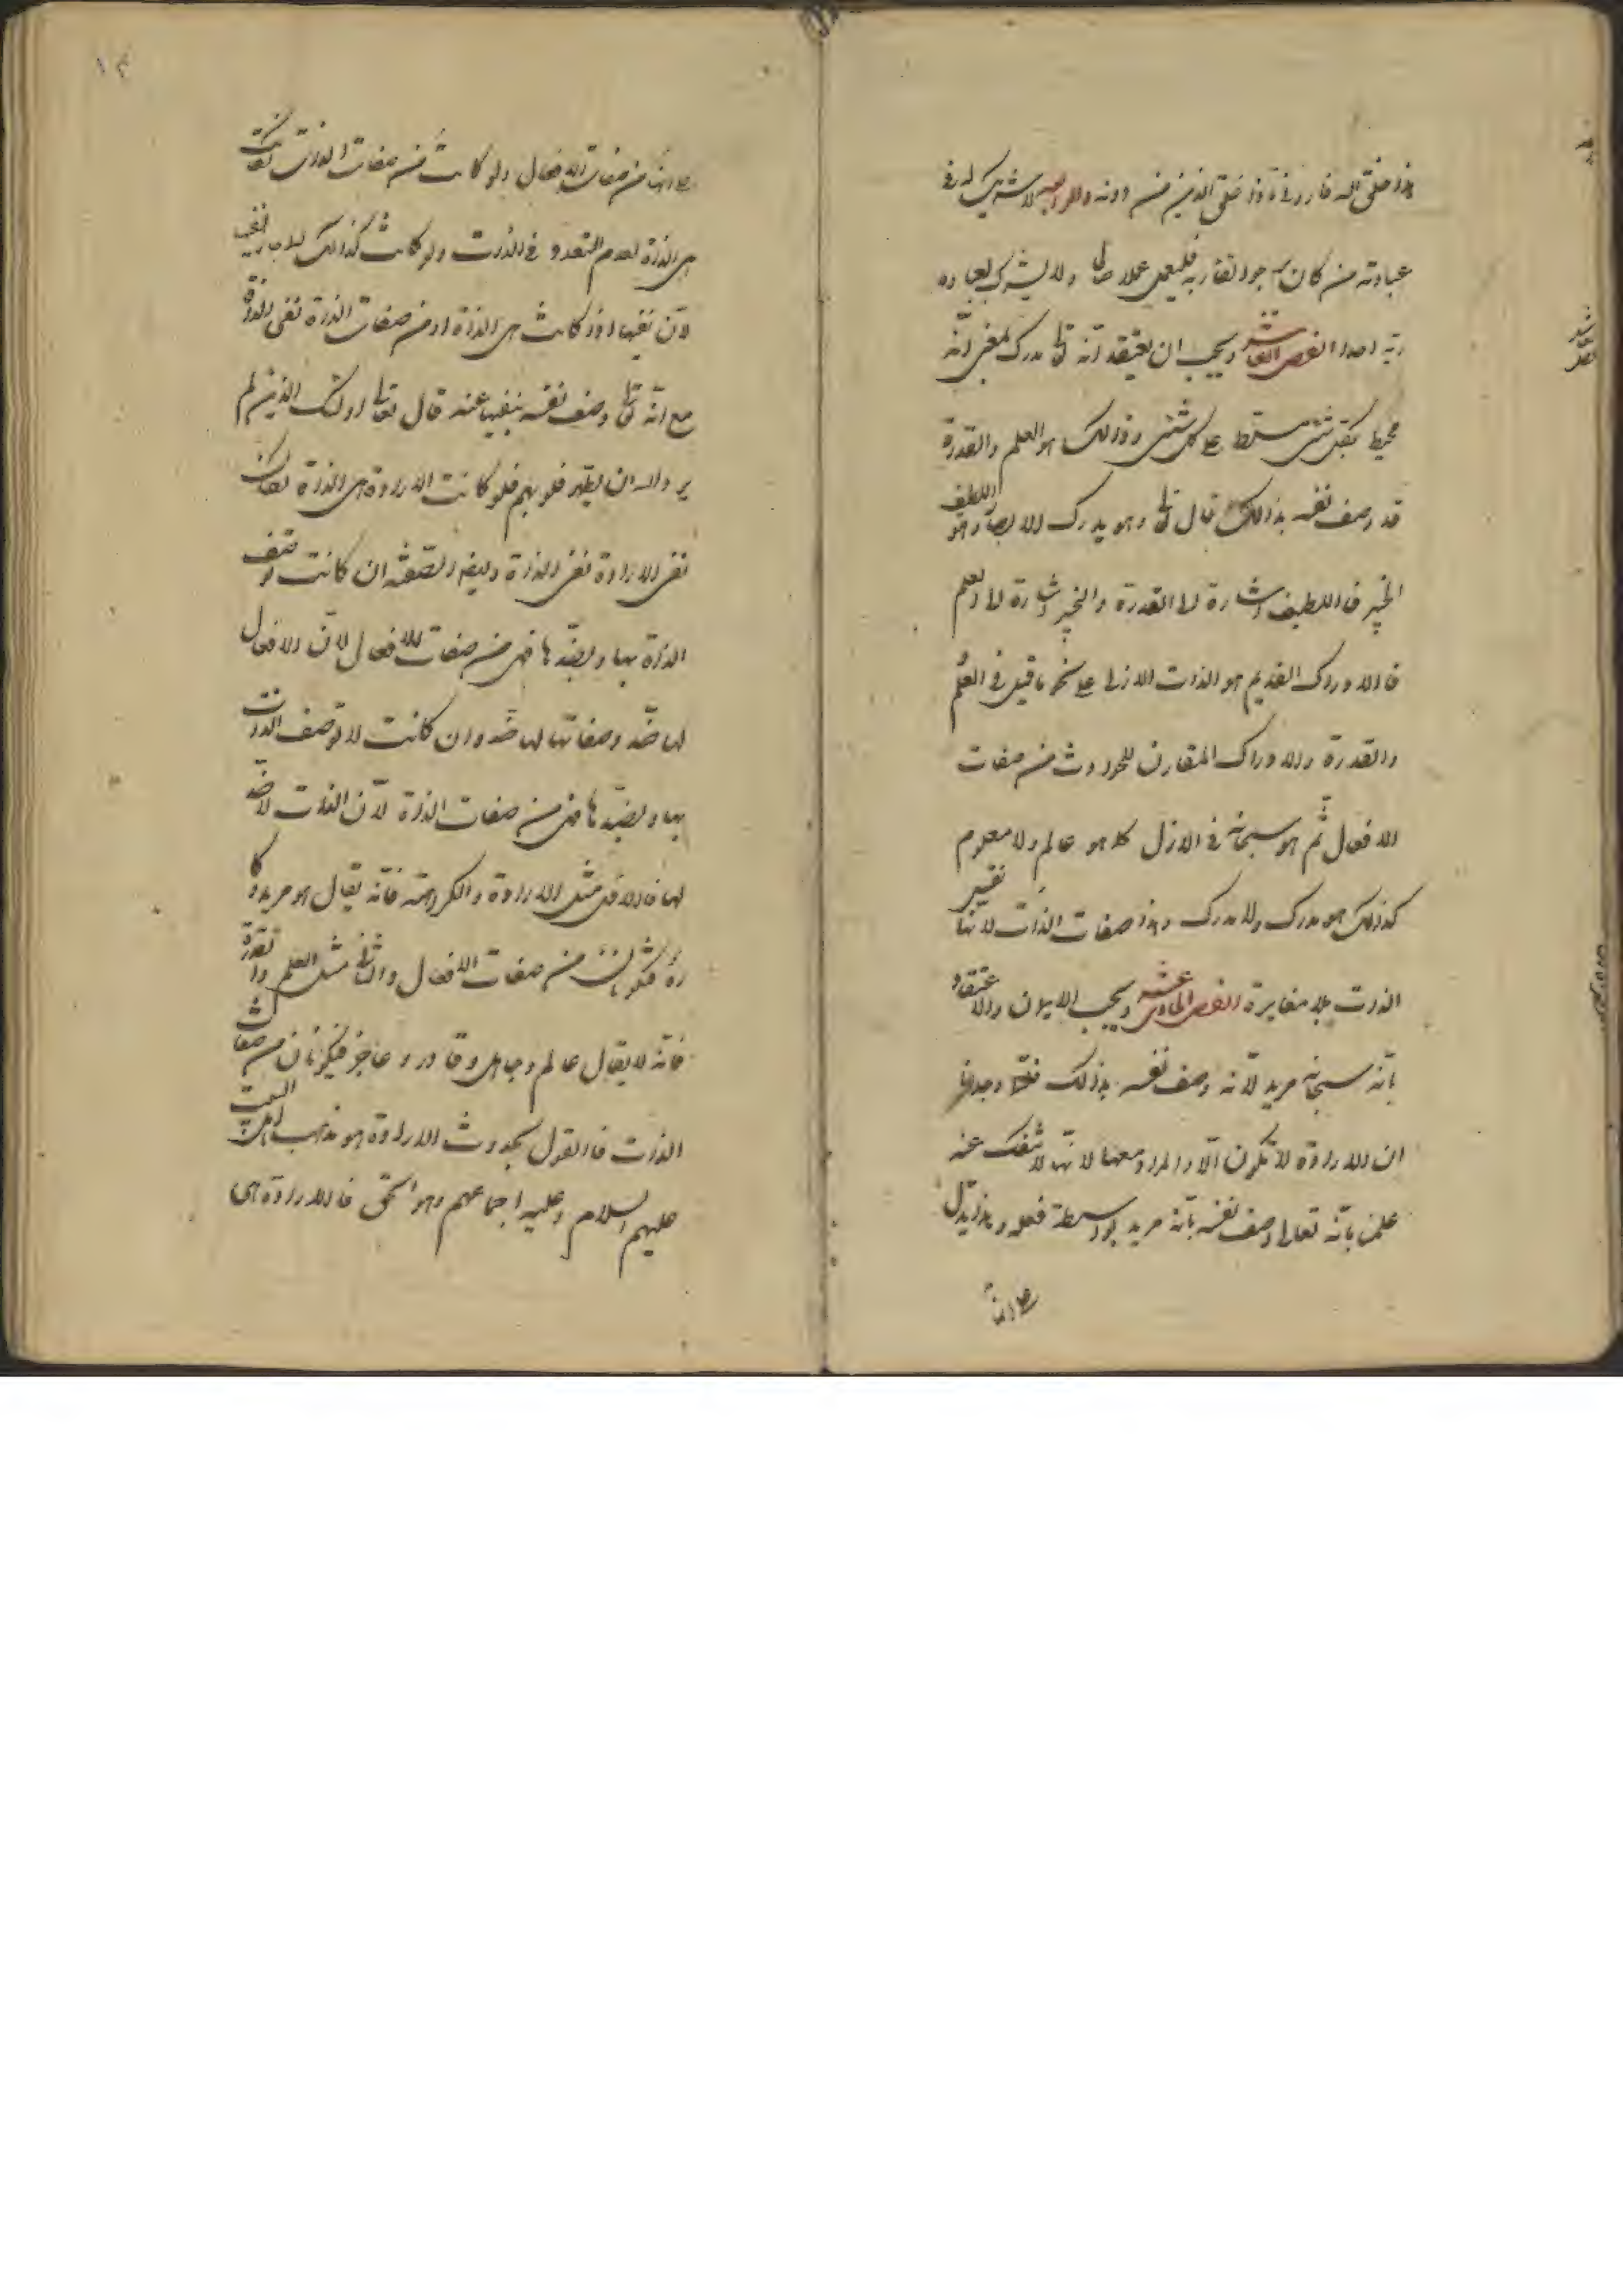 هذا خلق الله فاروني ماذا خلق الذين من دونه والرابع لا شريك له في
عبادته من كان يرجو لقاء ربه فليعمل عملا صالحا ولا يشرك بعباده
ربه احدا الفصل العاشر ويجب ان يعتقد انه تع مدرك بمعنى انه
محيط بكل شئ مسلط على كل شئ وذلك هو العلم والقدرة
قد وصف نفسه بذلك قال تع وهو يدرك الابصار وهو اللطيف
الخبير فاللطيف اشارة الى القدرة والخبير اشارة الى العلم
فالادراك القديم هو الذات الازلي على نحو ما قيل في العلم
والقدرة والادراك المقارن للحوادث من صفات
الافعال ثم هو سبحانه في الازل كما هو عالم ولا معلوم
كذلك هو مدرك ولا مدرك وهذا صفات الذات لانها نفس
الذات بلا مغايرة الفصل الحادي عشر ويجب الايمان والاعتقاد
بانه سبحانه مريد لانه وصف نفسه بذلك
ان الارادة لا تكون الا والمراد معها لانها لا تنفك عنه
علمنا بانه تعالى وصف نفسه بانه مريد بواسطة فعله وهذا يدل
على انها
على انها من صفات الافعال ولو كانت من صفات الذات لكانت
هي الذات لعدم التعدد في الذات ولو كانت كذلك لما جاز نفيها
لان نفيها اذا كانت هي الذات او من صفات الذات نفي الذات
مع انه تع وصف نفسه بنفيها عنه قال تعالى اولئك الذين لم
يرد الله ان يطهر قلوبهم فلو كانت الارادة هي الذات لكان
نفي الارادة نفي الذات وايضا الصفة ان كانت توصف
الذات بها وبضدها فهي من صفات الافعال لان الافعال
لها ضد وصفاتها لها ضد وان كانت لا توصف الذات
بها وبضدها فهي من صفات الذات لان الذات لا ضد
لها فالاول مثل الارادة والكراهة فانه يقال هو مريد وكا
ره فيكونان من صفات الافعال والثاني مثل العلم والقدرة
فانه لا يقال عالم وجاهل وقادر وعاجز فيكونان من صفات
الذات فالقول بحدوث الارادة هو مذهب اهل البيت
عليهم السلام وعليه اجماعهم وهو الحق فالارادة هي